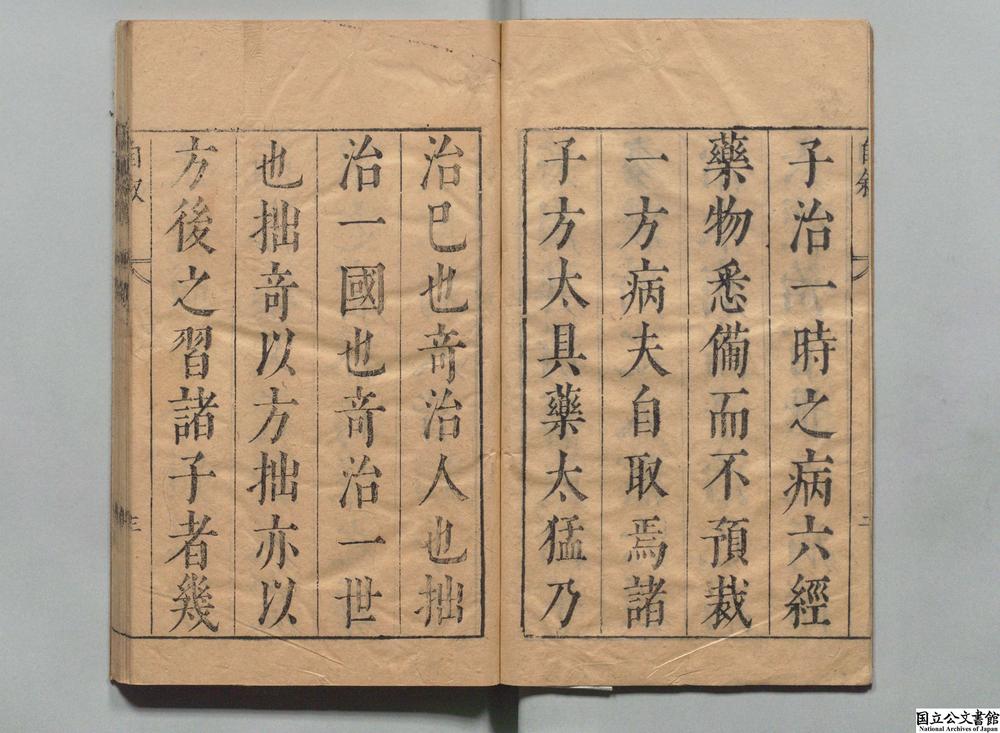 子治一時之病六經
藥物悉備而不預裁
一方病夫自取焉諸
子方太具藥太猛乃
治巳也竒治人也拙
治一國也竒治一世
也拙竒以方拙亦以
方後之習諸子者幾
自叙
三
国立公文書館
National Archives of Japan